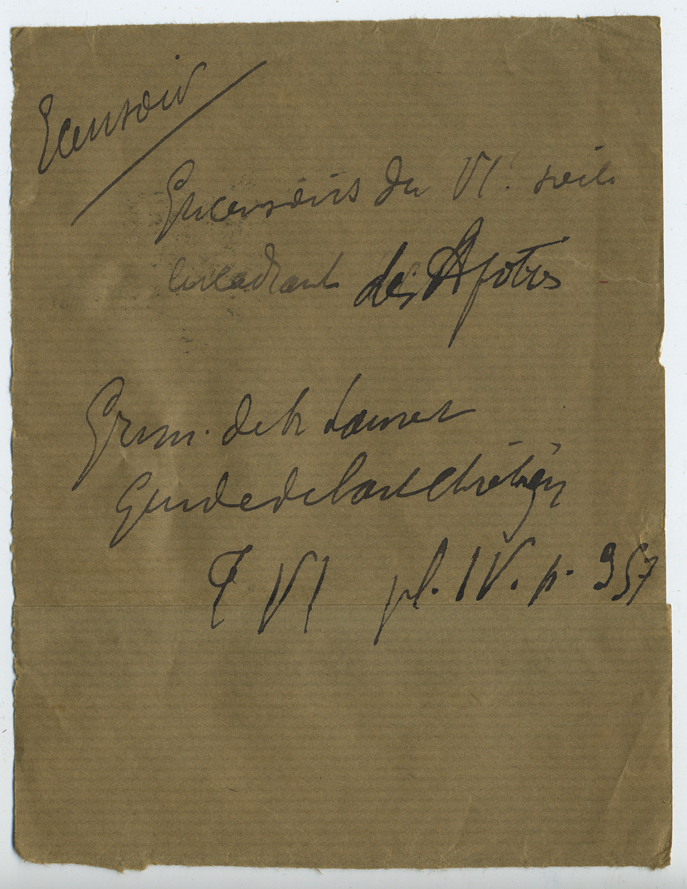 Encensoir
Encensoirs du VI. siècle
encadrant des Apôtres
Grim. de St Laurent
Guide de l'art chrétien
T VI pl. IV. p. 357